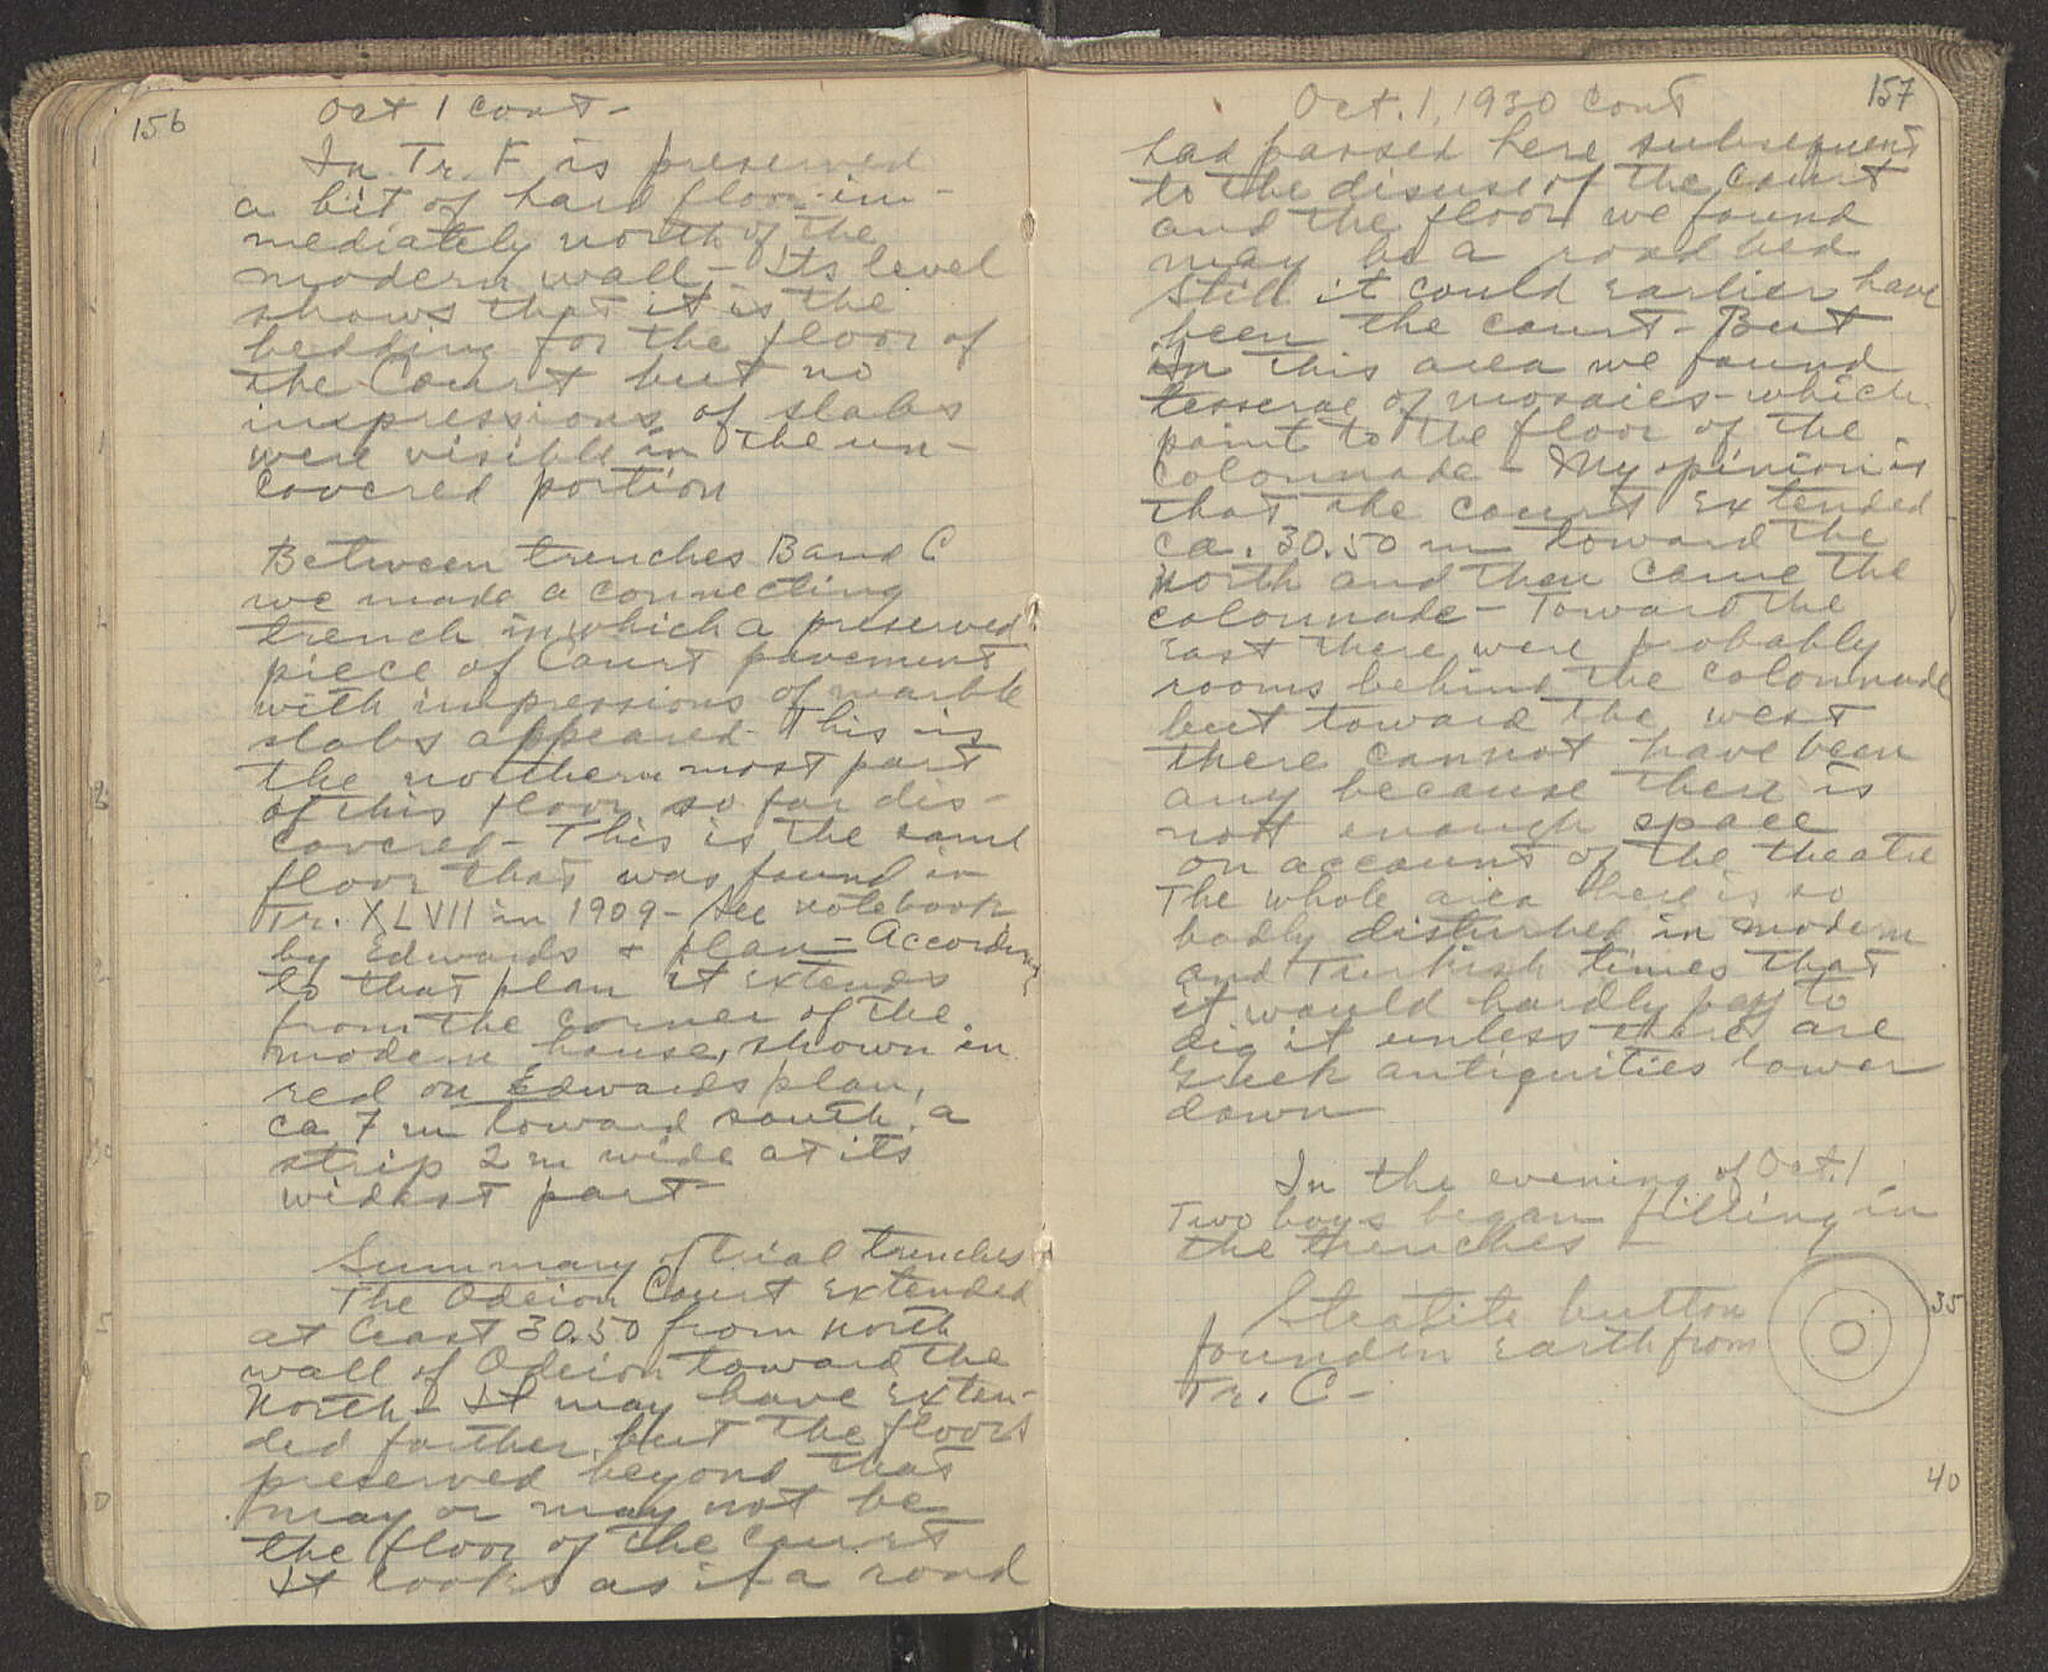 156
Oct 1 cont -
In Tr. F is preserved
a bit of hard floor im-
mediately north of the
modern wall - Its level
shows that it is the
bedding for the floor of
the Court but no
impressions of slabs
were visible in the un-
covered portion
Between trenches B and C
we made a connecting
trench in which a preserved
piece of Court pavement
with impressions of marble
slabs appeared - This is
the northern most part
of this floor so far dis-
covered - This is the same
floor that was found in
Tr. XLVII in 1909 - See notebook
by Edwards + plan - According
to that plan it extends
from the corner of the
modern house, shown in
red on Edwards plan,
ca 7 m toward south, a
strip 2 m wide at its
widest part -
Summary of trial trenches
The Odeion Court extended
at least 30.50 from north
wall of Odeion toward the
North - It may have exten-
ded farther but the floors
preserved beyond that
may or may not be
the floor of the court
It looks as if a road
157
Oct. 1, 1930 cont
had passed here subsequent
to the disuse of the court
and the floor we found
may be a road bed
Still it could earlier have
been the court - But
in this area we found
tesserae of mosaics - which
point to the floor of the
colonnade - My opinion is
that the court extended
ca. 30.50 m toward the
North and then came the
colonnade - Toward the
East there were probably
rooms behind the colonnade
but toward the west
there cannot have been
any because there is
not enough space
on account of the theatre
The whole area here is so
badly disturbed in modern
and Turkish times that
it would hardly pay to
dig it unless there are
Greek antiquities lower
down
In the evening of Oct. 1
Two boys began filling in
the trenches -
Steatite button
found in earth from
Tr. C -
35
40